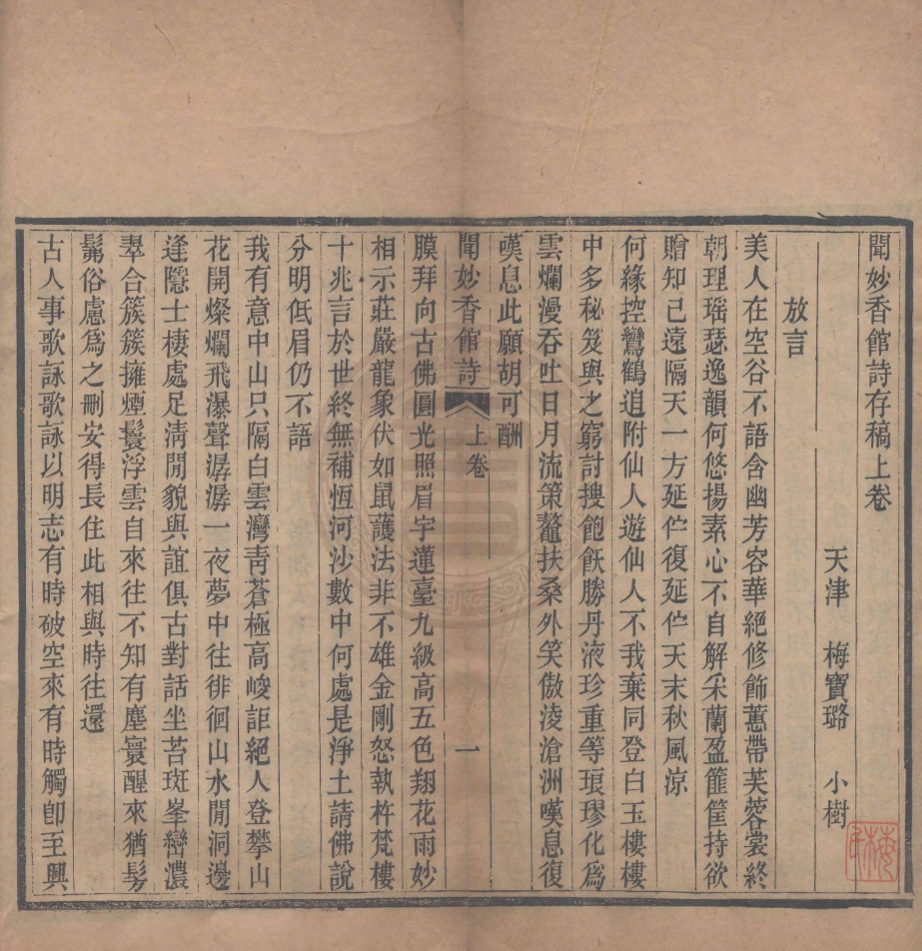 聞妙香館詩存稿上卷
天津　梅寶璐　小樹
放言
美人在空谷不語含幽芳容華絕修飾蕙帶芙蓉裳終
朝理瑤瑟逸韻何悠揚素心不自解采蘭盈篚筐持欲
贈知己遠隔天一方延伫復延伫天末秋風涼
何緣控鸞鶴追附仙人遊仙人不我棄同登白玉樓樓
中多秘笈與之窮討搜飽飫勝丹液珍重等琅璆化為
雲爛漫吞吐日月流策鼇扶桑外笑傲淩滄洲嘆息復
嘆息此願胡可酬
聞妙香館詩　上卷　一
膜拜向古佛圓光照眉宇蓮臺九級高五色翔花雨妙
相示莊嚴龍象伏如鼠護法非不雄金剛怒執杵梵樓
十兆言於世終無補恆河沙數中何處是淨土請佛說
分明低眉仍不語
我有意中山只隔白雲灣靑蒼極高峻詎絕人登攀山
花開燦爛飛瀑聲潺潺一夜夢中往徘徊山水閒洞邊
逢隱士棲處足淸閒貌與誼俱古對話坐苔斑峯巒濃
翠合簇簇擁煙鬟浮雲自來往不知有塵寰醒來猶髣
髴俗慮為之刪安得長住此相與時往還
古人事歌詠歌詠以明志有時破空來有時觸卽至興